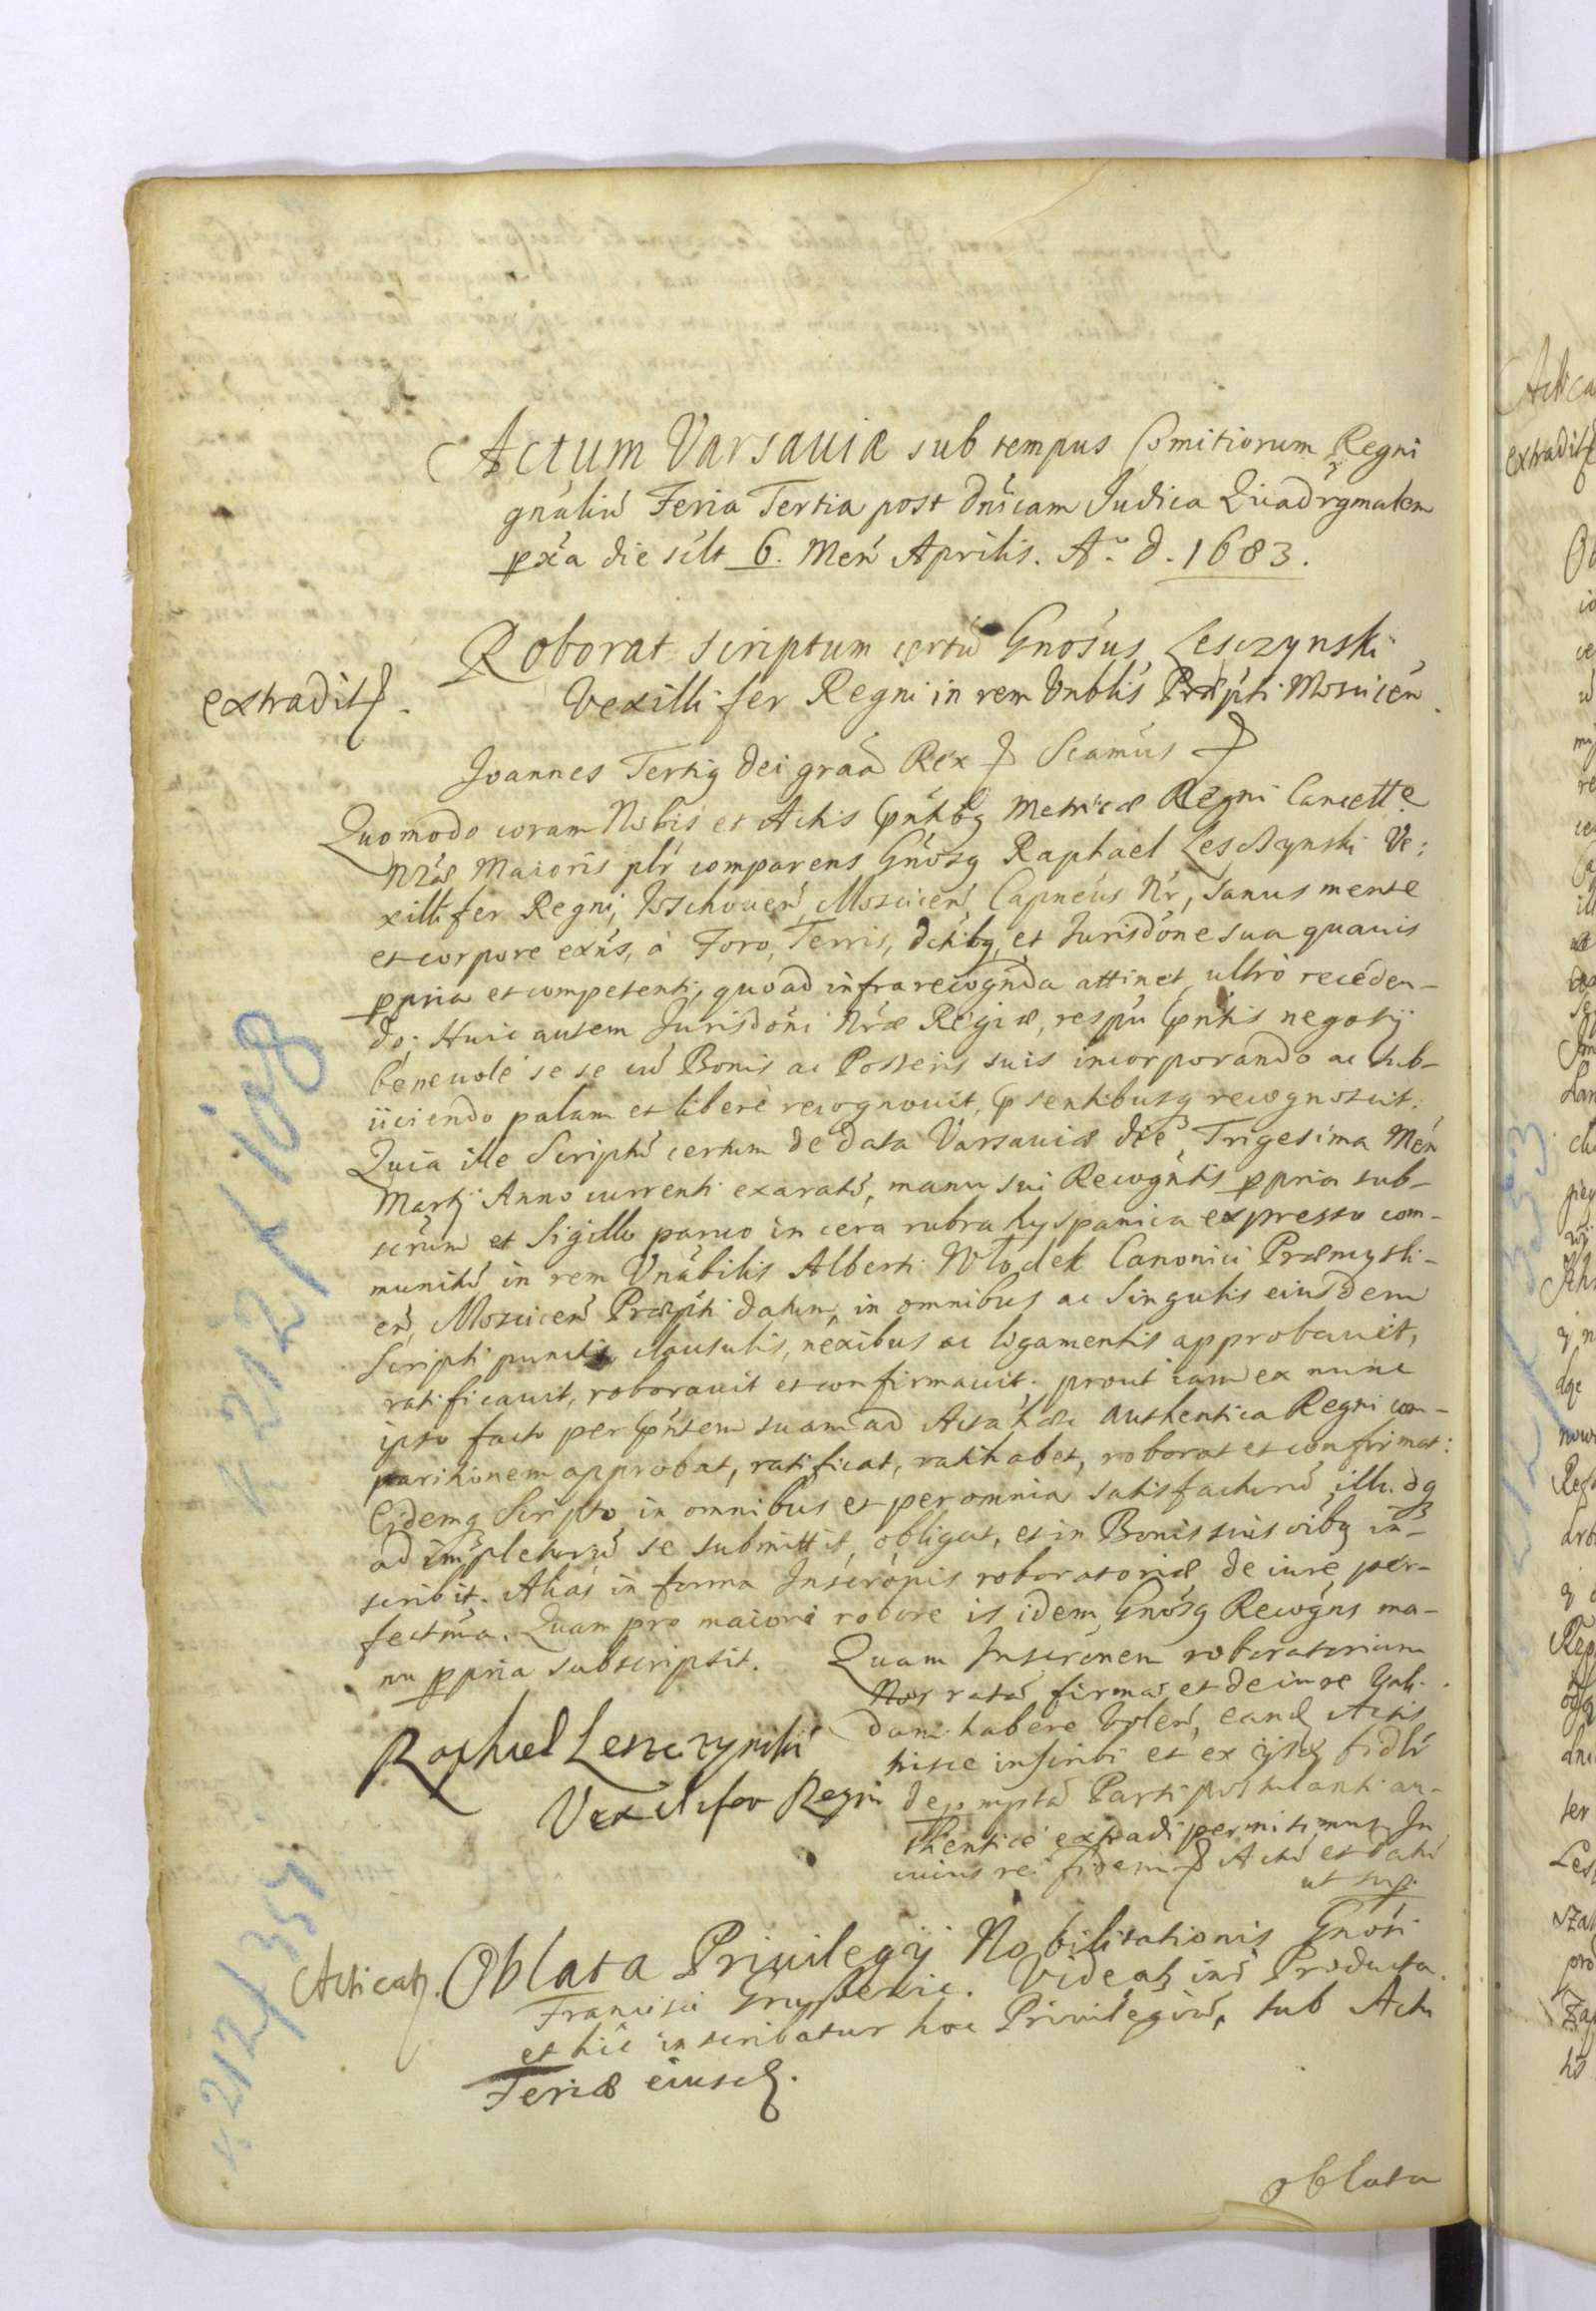 Actum Varsaviæ sub tempus Comitiorum Regni
gnãliũ Feria Tertia post Dnĩcam Judica Quadrgmalem
pxĩa die scĩlt 6. Men̄ Aprilis. A.° d. 1683.
Roborat scriptum certũ Gnosus Lesczynski
extradit.
Vexillifer Regni in rem Vnblis Præpti Moscicen̄
Joannes Tertiq Dei graã Rex Scamus
Quomodo coram Nobis et Actis pñtibq Metricæ Regni Cancellæ
Nræ Maioris plr comparens Gnosq Raphael Lesczynski Ve:
xillifer Regni, Wschouen̄, Moscicen̄, Capneus Nr, sanus mente
et corpore exns, à Foro, Terris, dctibq, et Jurisdone sua quavis
ppria et competenti, quoad infra recognda attinet, ultrò receden-
do; Huic autem Jurisdoni Nræ Regiæ, respu pñtis negotij
benevolé se se cũ Bonis ac Posteris suis incorporando ac sub-
iiciendo palam et liberè recognovit, psentibusq recognoscit.
Quia ille Scriptũ certum de data Varsaviæ die Trigesima Men̄
Martij Anno currenti exaratũ, manu sui Recogntis ppria sub-
scrũm et Sigillo parvo in cera rubra hyspanica expresso com-
munitũ in rem Vnabilis Alberti Włodek Canonici Præmysli-
en̄, Moscicen̄ Præpti datum, in omnibus ac singulis eiusdem
Scripti punctis clausulis, nexibus ac ligamentis approbavit,
ratificavit, roboravit et confirmavit; prout iam ex nunc
ipso facto per pñtem suam ad Acta hæc authentica Regni com-
paritionem approbat, ratificat, ratihabet, roborat et confirmat:
Eidemq Scripto in omnibus et per omnia satisfacturũ, illudq
ad impleturũ se submittit, obligat, et in Bonis suis oibq in-
scribit. Aliàs in forma Inscropis roboratoriæ de iure per-
fectma. Quam pro maiori robore is idem Gnosq Recogns ma-
nu ppria subscripsit. Quam Inscronem roboratoriam
Nos ratã firmã et de iure vali-
dam habere volen̄, eand Actis
hisce inscribi et ex ijsd fidlr
depromptã Parti postulanti au-
thenticè extradi permisimus. In
cuius rei fidem Actũ et datũ
ut sup.
Raphael Leszczynski
Vexilifer Regni
Acticat. Oblata Privilegij Nobilitationis Gnosi
Francisci . Videat inf Producta.
et hìc inscribatur hoc Privilegiũ, sub Actu
Feriæ eiusd.
oblata